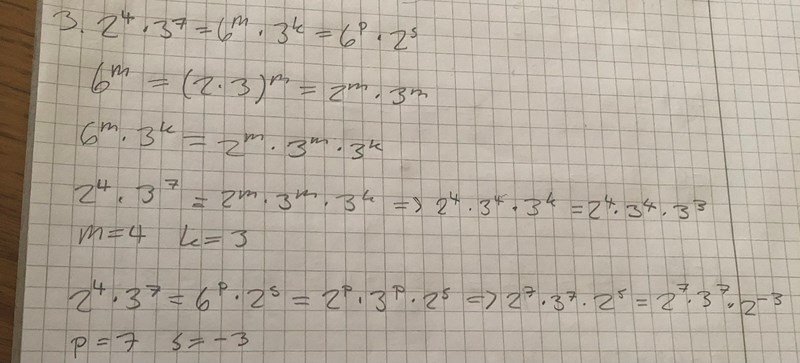 3. 2⁴·3⁷ = 6ᵐ·3ᵏ = 6ᵖ·2ˢ
6ᵐ = (2·3)ᵐ = 2ᵐ·3ᵐ
6ᵐ·3ᵏ = 2ᵐ·3ᵐ·3ᵏ
2⁴·3⁷ = 2ᵐ·3ᵐ·3ᵏ => 2⁴·3⁴·3ᵏ = 2⁴·3⁴·3³
m=4 k=3
2⁴·3⁷ = 6ᵖ·2ˢ = 2ᵖ·3ᵖ·2ˢ => 2⁷·3⁷·2ˢ = 2⁷·3⁷·2⁻³
p=7 s=-3